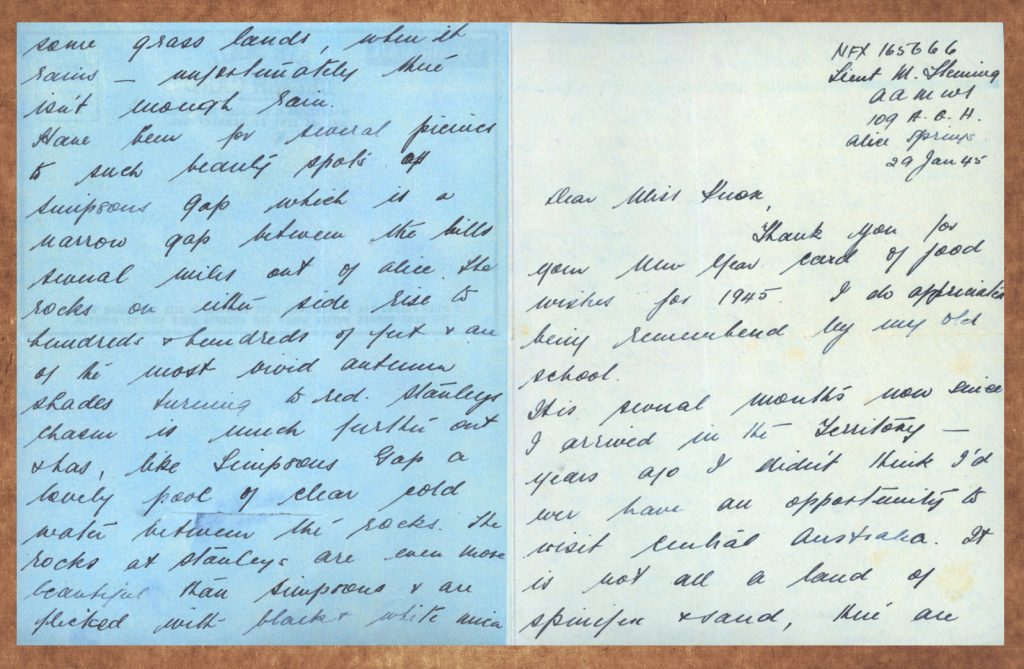 NFX 165666
Lieut M. Fleming
A A M W S
109 A. G. H.
Alice Springs
29 Jan 45
Dear Miss Knox,
Thank you for
your New Year card of good
wishes for 1945. I do appreciate
being remembered by my old
school.
It is several months now since
I arrived in the Territory —
years ago I didn't think I'd
ever have an opportunity to
visit Central Australia. It
is not all a land of
spinifex & sand, there are
some grass lands, when it
rains — unfortunately there
isn't enough rain.
Have been for several picnics
to such beauty spots as
Simpsons Gap which is a
narrow gap between the hills
several miles out of Alice. The
rocks on either side rise to
hundreds & hundreds of feet & are
of the most vivid autumn
shades turning to red. Stanleys
chasm is much further out
& has, like Simpsons Gap a
lovely pool of clear cold
water between the rocks. The
rocks at Stanleys are even more
beautiful than Simpsons & are
flecked with black & white mica